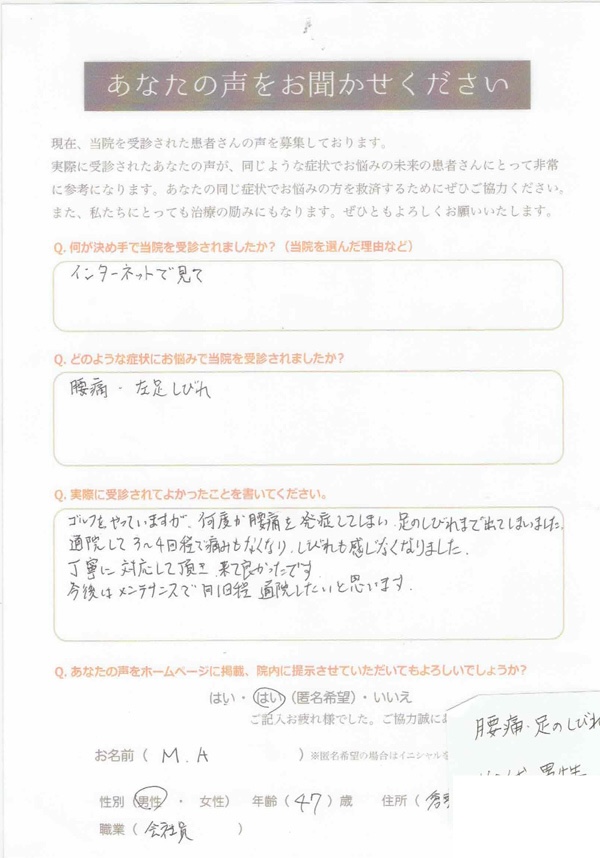 あなたの声をお聞かせください
現在、当院を受診された患者さんの声を募集しております。
実際に受診されたあなたの声が、同じような症状でお悩みの未来の患者さんにとって非常
に参考になります。あなたの同じ症状でお悩みの方を救済するためにぜひご協力ください。
また、私たちにとっても治療の励みにもなります。ぜひともよろしくお願いいたします。
Q. 何が決め手で当院を受診されましたか？（当院を選んだ理由など）
インターネットで見て
Q. どのような症状にお悩みで当院を受診されましたか？
腰痛・左足しびれ
Q. 実際に受診されてよかったことを書いてください。
ゴルフをやっていますが、何度か腰痛を発症してしまい 足のしびれまで出てしまいました。
通院して3〜4日程で痛みもなくなり、しびれも感じなくなりました。
丁寧に対応して頂き 来て良かったです
今後はメンテナンスで月1回程 通院したいと思います.
Q. あなたの声をホームページに掲載、院内に提示させていただいてもよろしいでしょうか？
はい・はい（匿名希望）・いいえ
ご記入お疲れ様でした。ご協力誠に
腰痛・足のしびれ
お名前（ M.A ）※匿名希望の場合はイニシャルを
男性
性別（男性 ・ 女性） 年齢（47）歳 住所（
職業（会社員 ）